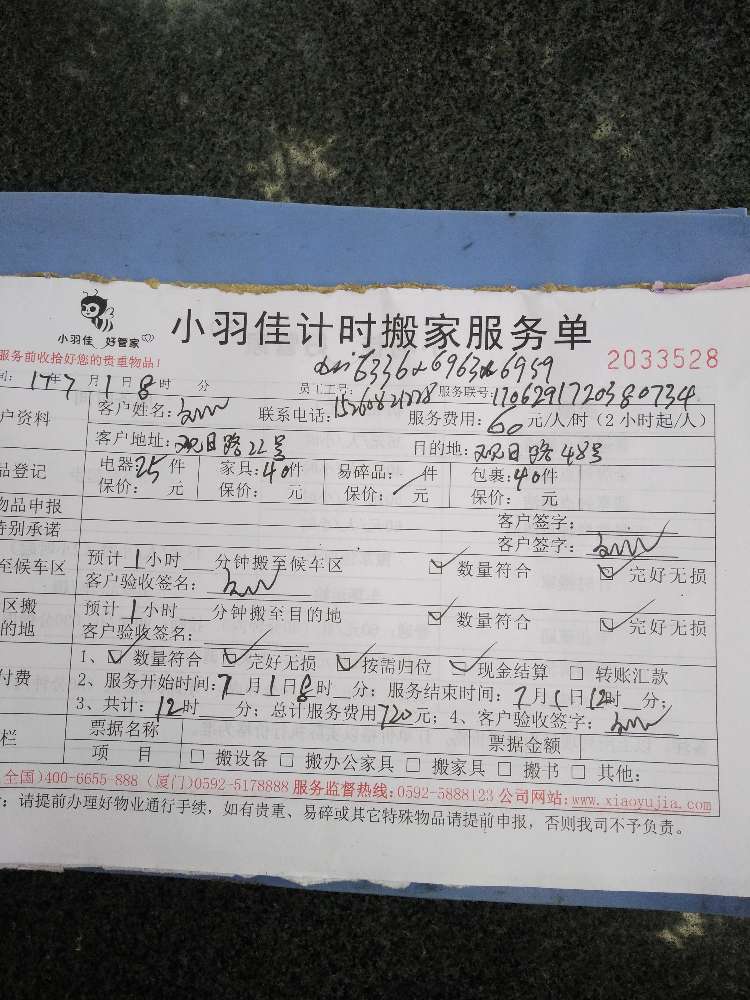 小羽佳 好管家
小羽佳计时搬家服务单
服务前收拾好您的贵重物品!
2033528
6336 6963 6959
17年7月1日8时 分 员工工号: 服务联号:1706291720380734
户资料
客户姓名: 联系电话: 服务费用:60元/人/时(2小时起/人)
客户地址:观日路22号 目的地:观日路48号
品登记
电器:25件 家具:40件 易碎品:/件 包裹:40件
保价: 元 保价: 元 保价: 元 保价: 元
物品申报 客户签字:
特别承诺 客户签字:
至候车区
预计1小时 分钟搬至候车区 ☑ 数量符合 ☑ 完好无损
客户验收签名:
区搬
的地
预计1小时 分钟搬至目的地 ☑ 数量符合 ☑ 完好无损
客户验收签名:
付费
1、☑ 数量符合 ☑ 完好无损 ☑ 按需归位 ☑ 现金结算 □ 转账汇款
2、服务开始时间:7月1日8时 分; 服务结束时间:7月1日12时 分;
3、共计:12时 分; 总计服务费用720元; 4、客户验收签字:
栏
票据名称 票据金额
项 目 □ 搬设备 □ 搬办公家具 □ 搬家具 □ 搬书 □ 其他:
全国)400-6655-888 (厦门)0592-5178888 服务监督热线:0592-5888123 公司网站:www.xiaoyujia.com
: 请提前办理好物业通行手续, 如有贵重、易碎或其它特殊物品请提前申报, 否则我司不予负责。